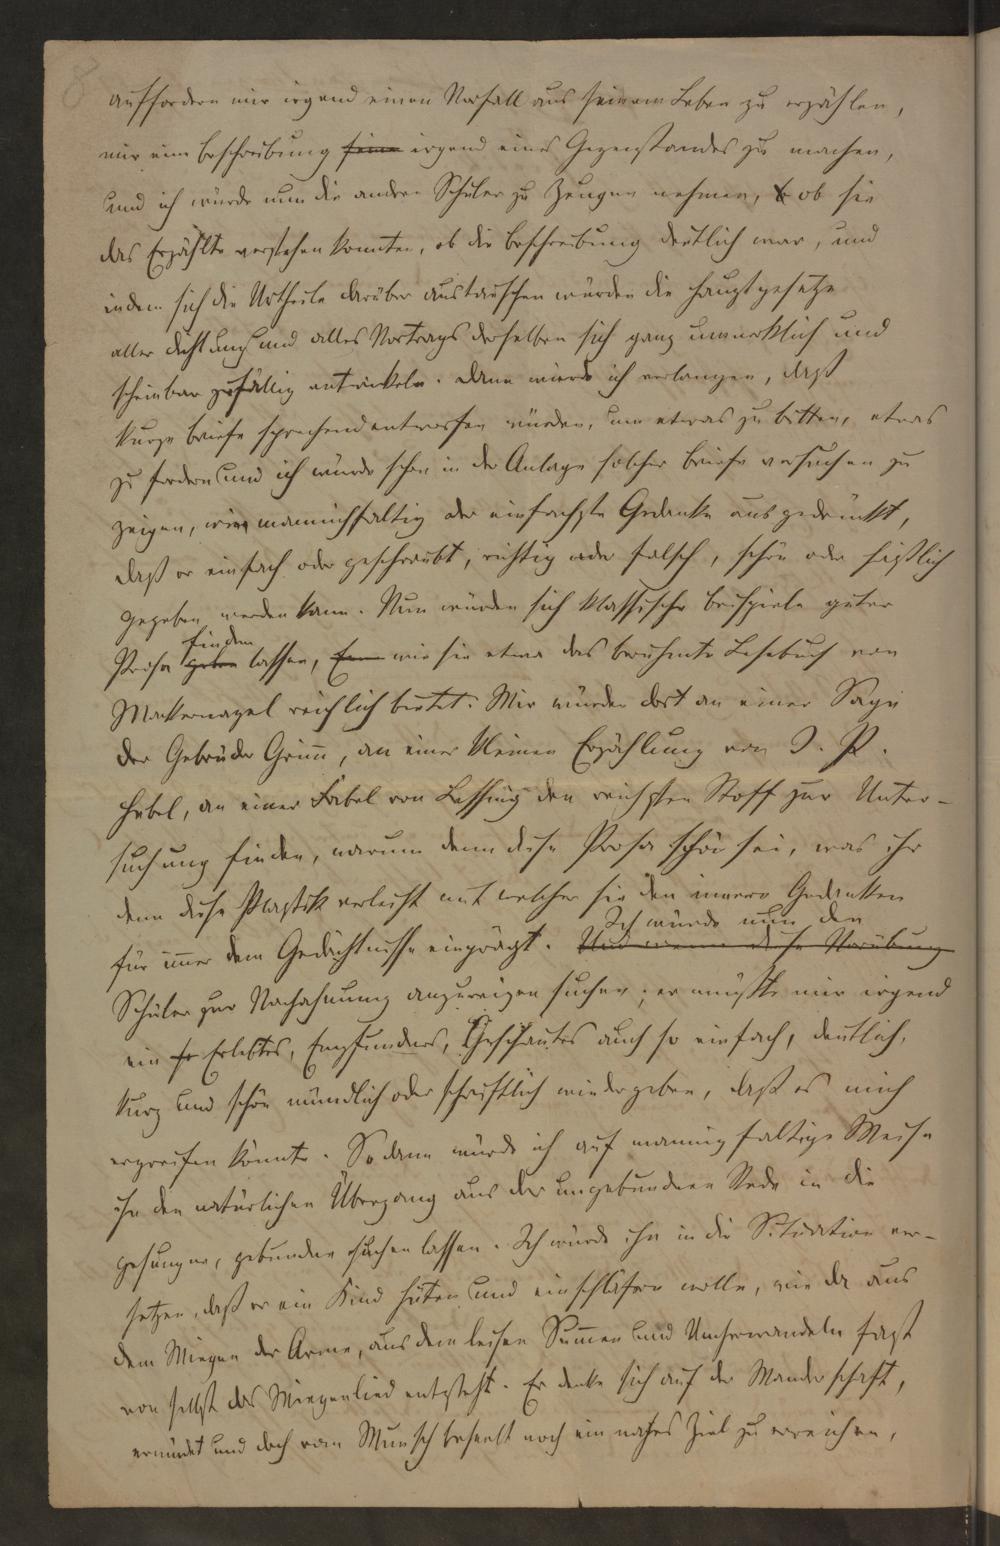 8
auffordern mir irgend einen Vorfall aus seinem Leben zu erzählen,
mir eine Beschreibung seine irgend eines Gegenstandes zu machen,
und ich würde nun die andern Schüler zu Zeugen nehmen, ob sie
das Erzählte verstehen konnten, ob die Beschreibung deutlich war, und
indem sich die Urtheile darüber austauschen würden die Hauptgesetze
aller Dichtung und alles Vortrags derselben sich ganz unmerklich und
scheinbar zufällig entwickeln. Dann würde ich verlangen, daß
kurze Briefe sprechend entworfen würden, um etwas zu bitten, etwas
zu fordern und ich würde schon in der Anlage solcher Briefe versuchen zu
zeigen, wie mannichfaltig der einfachste Gedanke ausgedrückt,
daß er einfach oder geschraubt, richtig oder falsch, schön oder häßlich
gegeben werden kann. Nun würden sich klassische Beispiele guter
finden
Prosa geben lassen, wie sie etwa das berühmte Lesebuch von
Wackernagel reichlich bietet. Wir würden dort an einer Sage
der Gebrüder Grimm, an einer kleinen Erzählung von J. P.
Hebel, an einer Fabel von Lessing den reichsten Stoff zur Unter-
suchung finden, warum denn diese Prosa schön sei, was ihr
denn diese Plastik verleiht mit welcher sie den innern Gedanken
Ich würde nun den
für immer dem Gedächtnisse einprägt. Und wenn diese Vorübung
Schüler zur Nachahmung anzureizen suchen; er müßte mir irgend
ein Erlebtes, Empfundnes, Geschautes auch so einfach, deutlich,
kurz und schön mündlich oder schriftlich wiedergeben, daß es mich
ergreifen könnte. Sodann würde ich auf mannigfaltige Weise
ihn den natürlichen Übergang aus der ungebundnen Rede in die
gesungne, gebundne suchen lassen. Ich würde ihn in die Situation ver-
setzen, daß er ein Kind hüten und einschläfern wolle, wie da aus
dem Wiegen der Arme, aus dem leisen Summen und Umherwandeln fast
von selbst das Wiegenlied entsteht. Er denke sich auf der Wanderschaft,
ermüdet und doch vom Wunsch beseelt noch ein nahes Ziel zu erreichen,